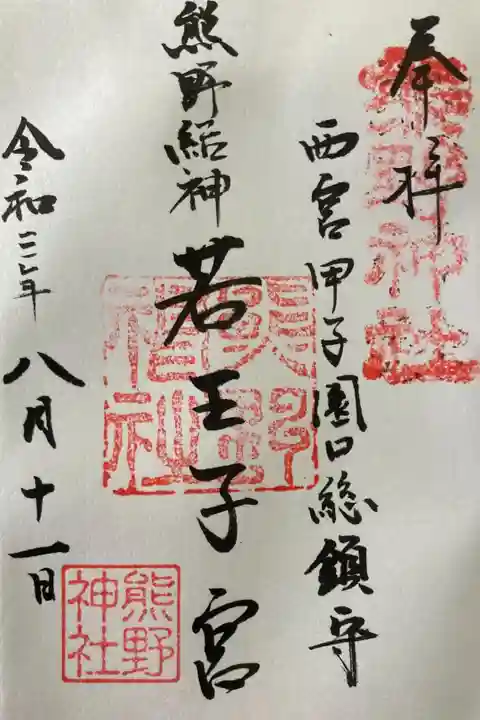 奉拝
西宮甲子園口総鎮守
熊野結神
若王子宮
令和三年八月十一日
熊野神社
熊野神社